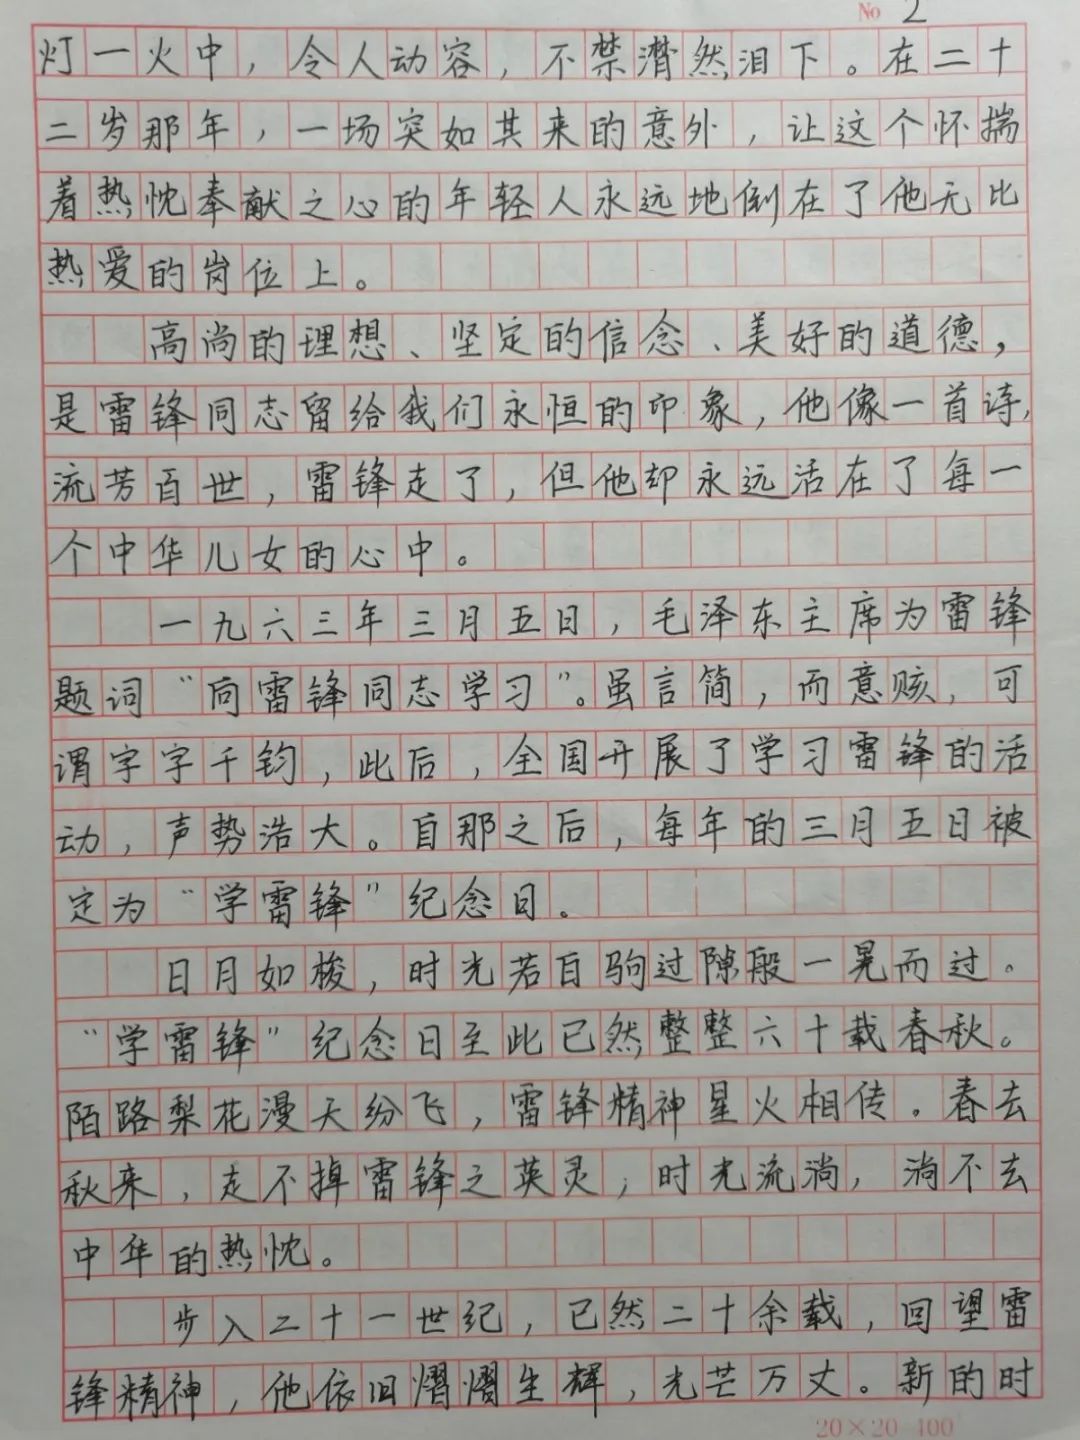 No 2
灯一火中，令人动容，不禁潸然泪下。在二十
二岁那年，一场突如其来的意外，让这个怀揣
着热忱奉献之心的年轻人永远地倒在了他无比
热爱的岗位上。
高尚的理想、坚定的信念、美好的道德，
是雷锋同志留给我们永恒的印象，他像一首诗，
流芳百世，雷锋走了，但他却永远活在了每一
个中华儿女的心中。
一九六三年三月五日，毛泽东主席为雷锋
题词“向雷锋同志学习”。虽言简，而意赅，可
谓字字千钧，此后，全国开展了学习雷锋的活
动，声势浩大。自那之后，每年的三月五日被
定为“学雷锋”纪念日。
日月如梭，时光若白驹过隙般一晃而过。
“学雷锋”纪念日至此已然整整六十载春秋。
陌路梨花漫天纷飞，雷锋精神星火相传。春去
秋来，走不掉雷锋之英灵；时光流淌，淌不去
中华的热忱。
步入二十一世纪，已然二十余载，回望雷
锋精神，他依旧熠熠生辉，光芒万丈。新的时
20×20=400